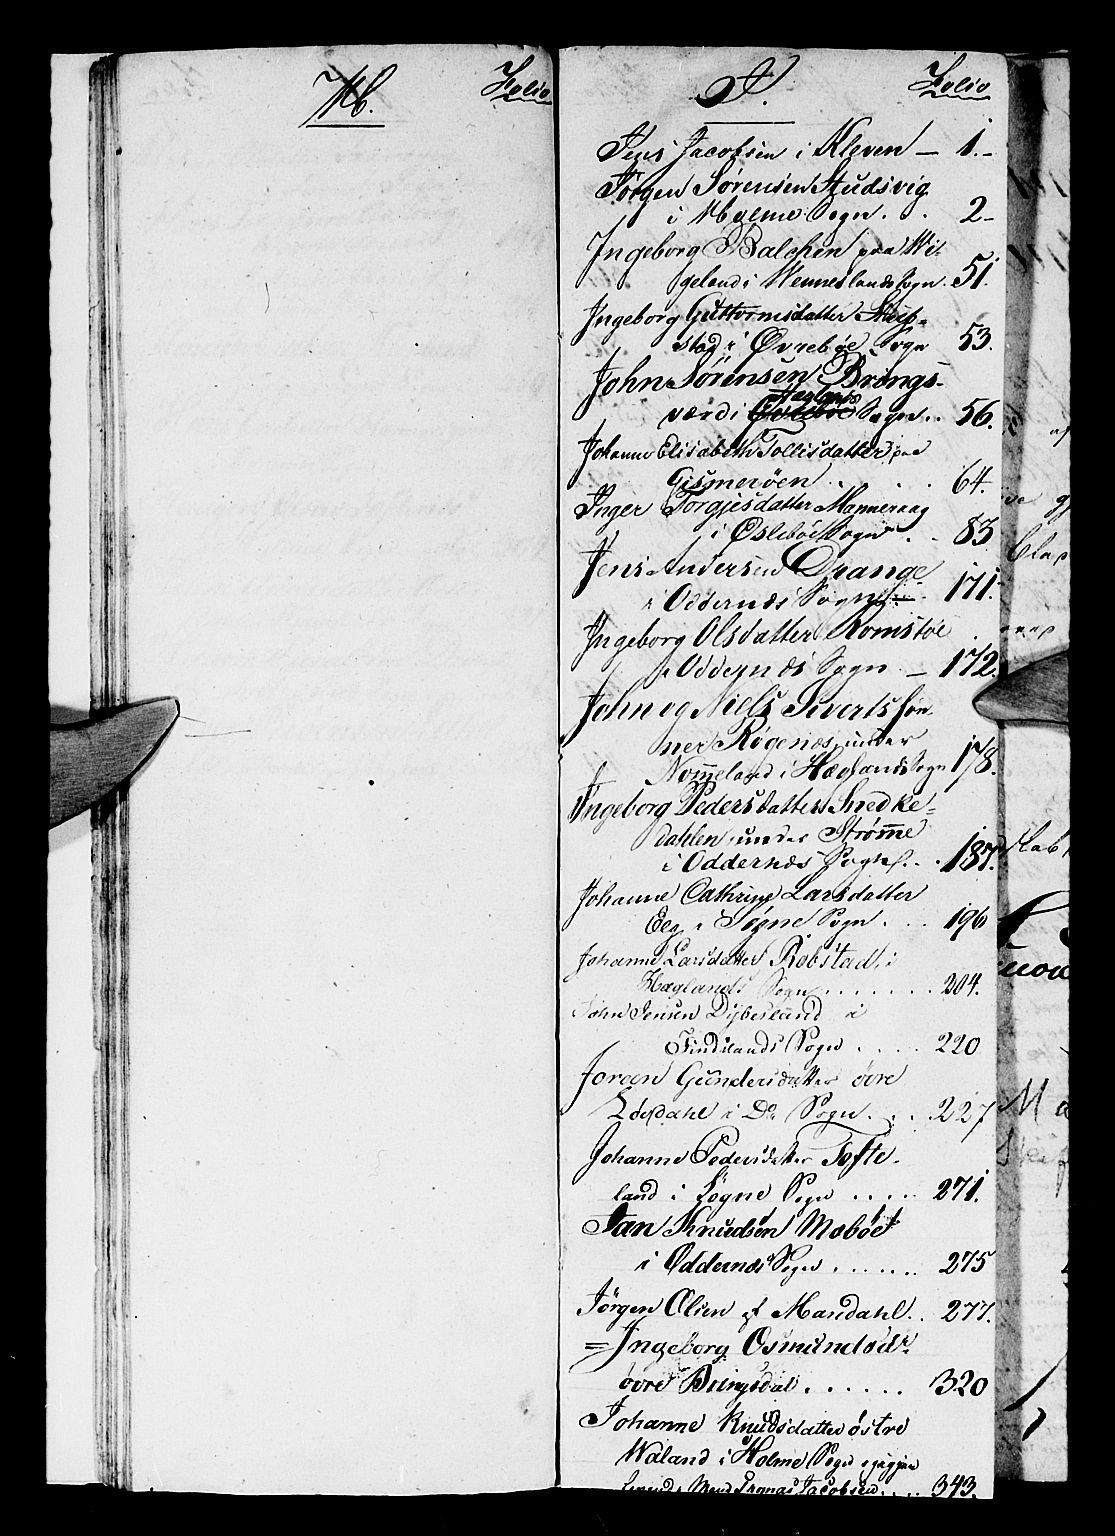 Folio
J.
Folio
Jens Jacobsen i Kleven — 1.-
Jørgen Sørensen Studsvig
i Holme Sogn. . . 2-
Ingeborg Balchen paa Wi-
geland i Wenneslands Sogn. 51.
Ingeborg Guttormsdatter Skeip-
stad i Øvrebøe Sogn 53.
John Sørensen Brings-
værd i Heglands Sogn.. 56.
Johanne Elisabeth Tollisdatter paa
Gismerøen . . . 64.
Inger Torgjesdatter Manneraag
i Øslebøe Sogn . . 83
Jens Andersen Drange
i Oddernæs Sogn . 171.
Ingeborg Olsdatter Romstøe
i Oddernæs Sogn — 172.
John og Niels Sivertssøn-
ner Røgenæs, under
Nom̅eland i Hæglands Sogn 178.
Ingeborg Pedersdatter Snedke-
dahlen, under Strøm̅e
i Oddernæs Sogn. . . 187.
Johanne Cathrine Larsdatter
Eeg i Søgne Sogn . . . 196
Johanne Larsdatter Robstad, i
Hæglands Sogn . . . . . . . 204.
John Jensen Dybesland i
Findslands Sogn . . . . 220
Joren Gundersdatter øvre
Løefdahl i Do Sogn. . . 227
Johanne Pedersdatter Tofte-
land i Søgne Sogn . . . . . 271.
Jan Knudsen Mæbøe
i Oddernæs Sogn . . . . . . 275
Jørgen Olsen af Mandahl. . 277.
= Ingeborg Osmundsd:
øvre Bringsdal . . . . . . 320
Johanne Knudsdatter østre
Waland i Holme Sogn
Mand Jacobsen . . . 343.